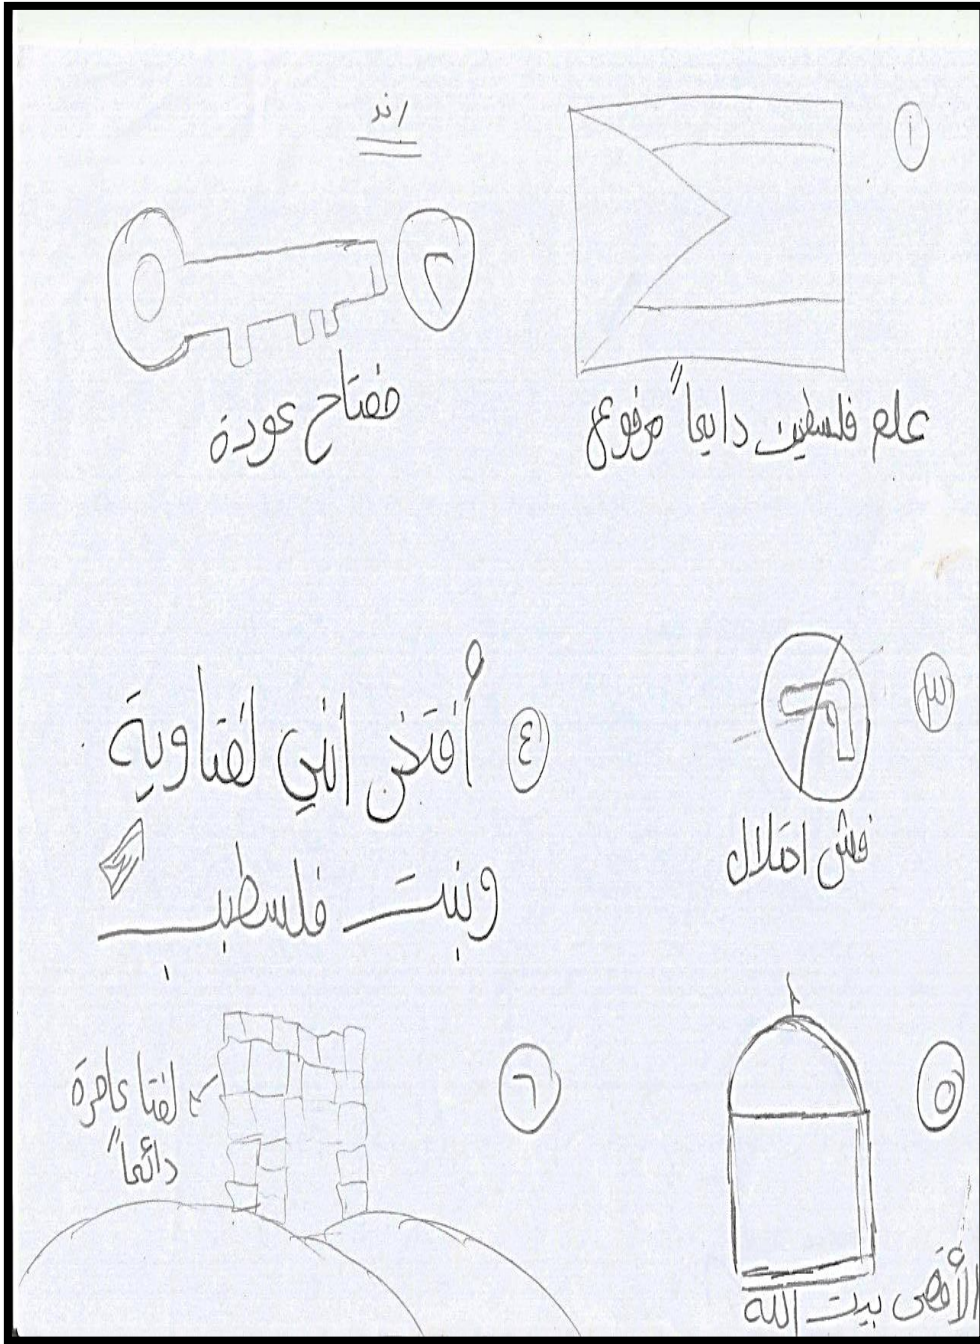 ١
علم فلسطين دايماً مرفوع
٢
مفتاح عودة
٣
فش احتلال
٤ أفتخر اني لفتاوية
وبنت فلسطين
٥
الأقصى بيت الله
٦
لفتا عامرة
دائماً